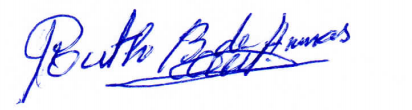 Ruth B. de Armas